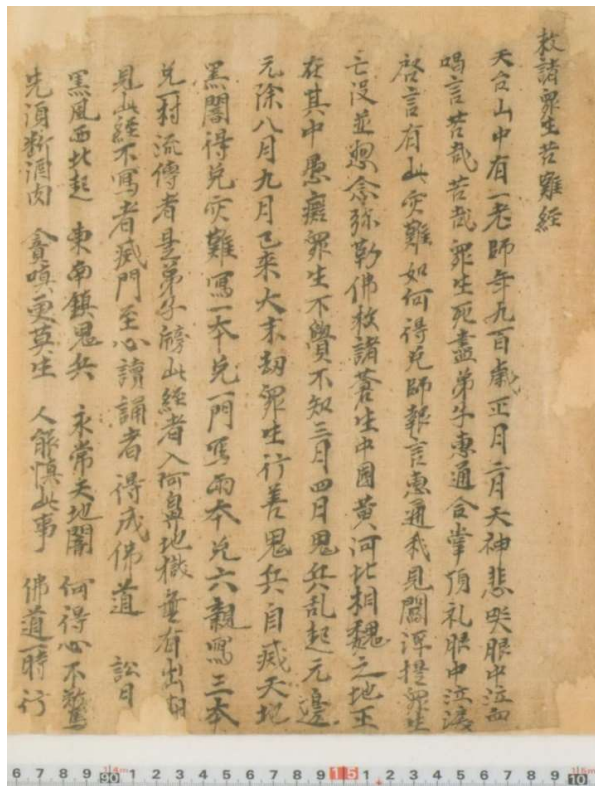 救諸眾生苦難經
天台山中有一老師年九百歲正月二月天神悲哭眼中泣血
唱言苦哉苦哉眾生死盡弟子惠通合掌頂礼眼中泣淚
啓言有此灾難如何得免師報言惠通我見閻浮提眾生
亡沒並惣念弥勒佛救諸蒼生中國黃河北相魏之地正
在其中愚癡眾生不覺不知三月四日鬼兵乱起无邊
无際八月九月已來大末劫眾生行善鬼兵自滅天地
黑闇得免灾難寫一本免一門寫兩本免六親寫三本
免一村流傳者是弟子謗此經者入阿鼻地獄無有出期
見此經不寫者滅門至心讀誦者得成佛道 訟曰
黑風西北起 東南鎮鬼兵 永常天地闇 何得心不驚
先須斷酒肉 貪嗔更莫生 人能慎此事 佛道一時行